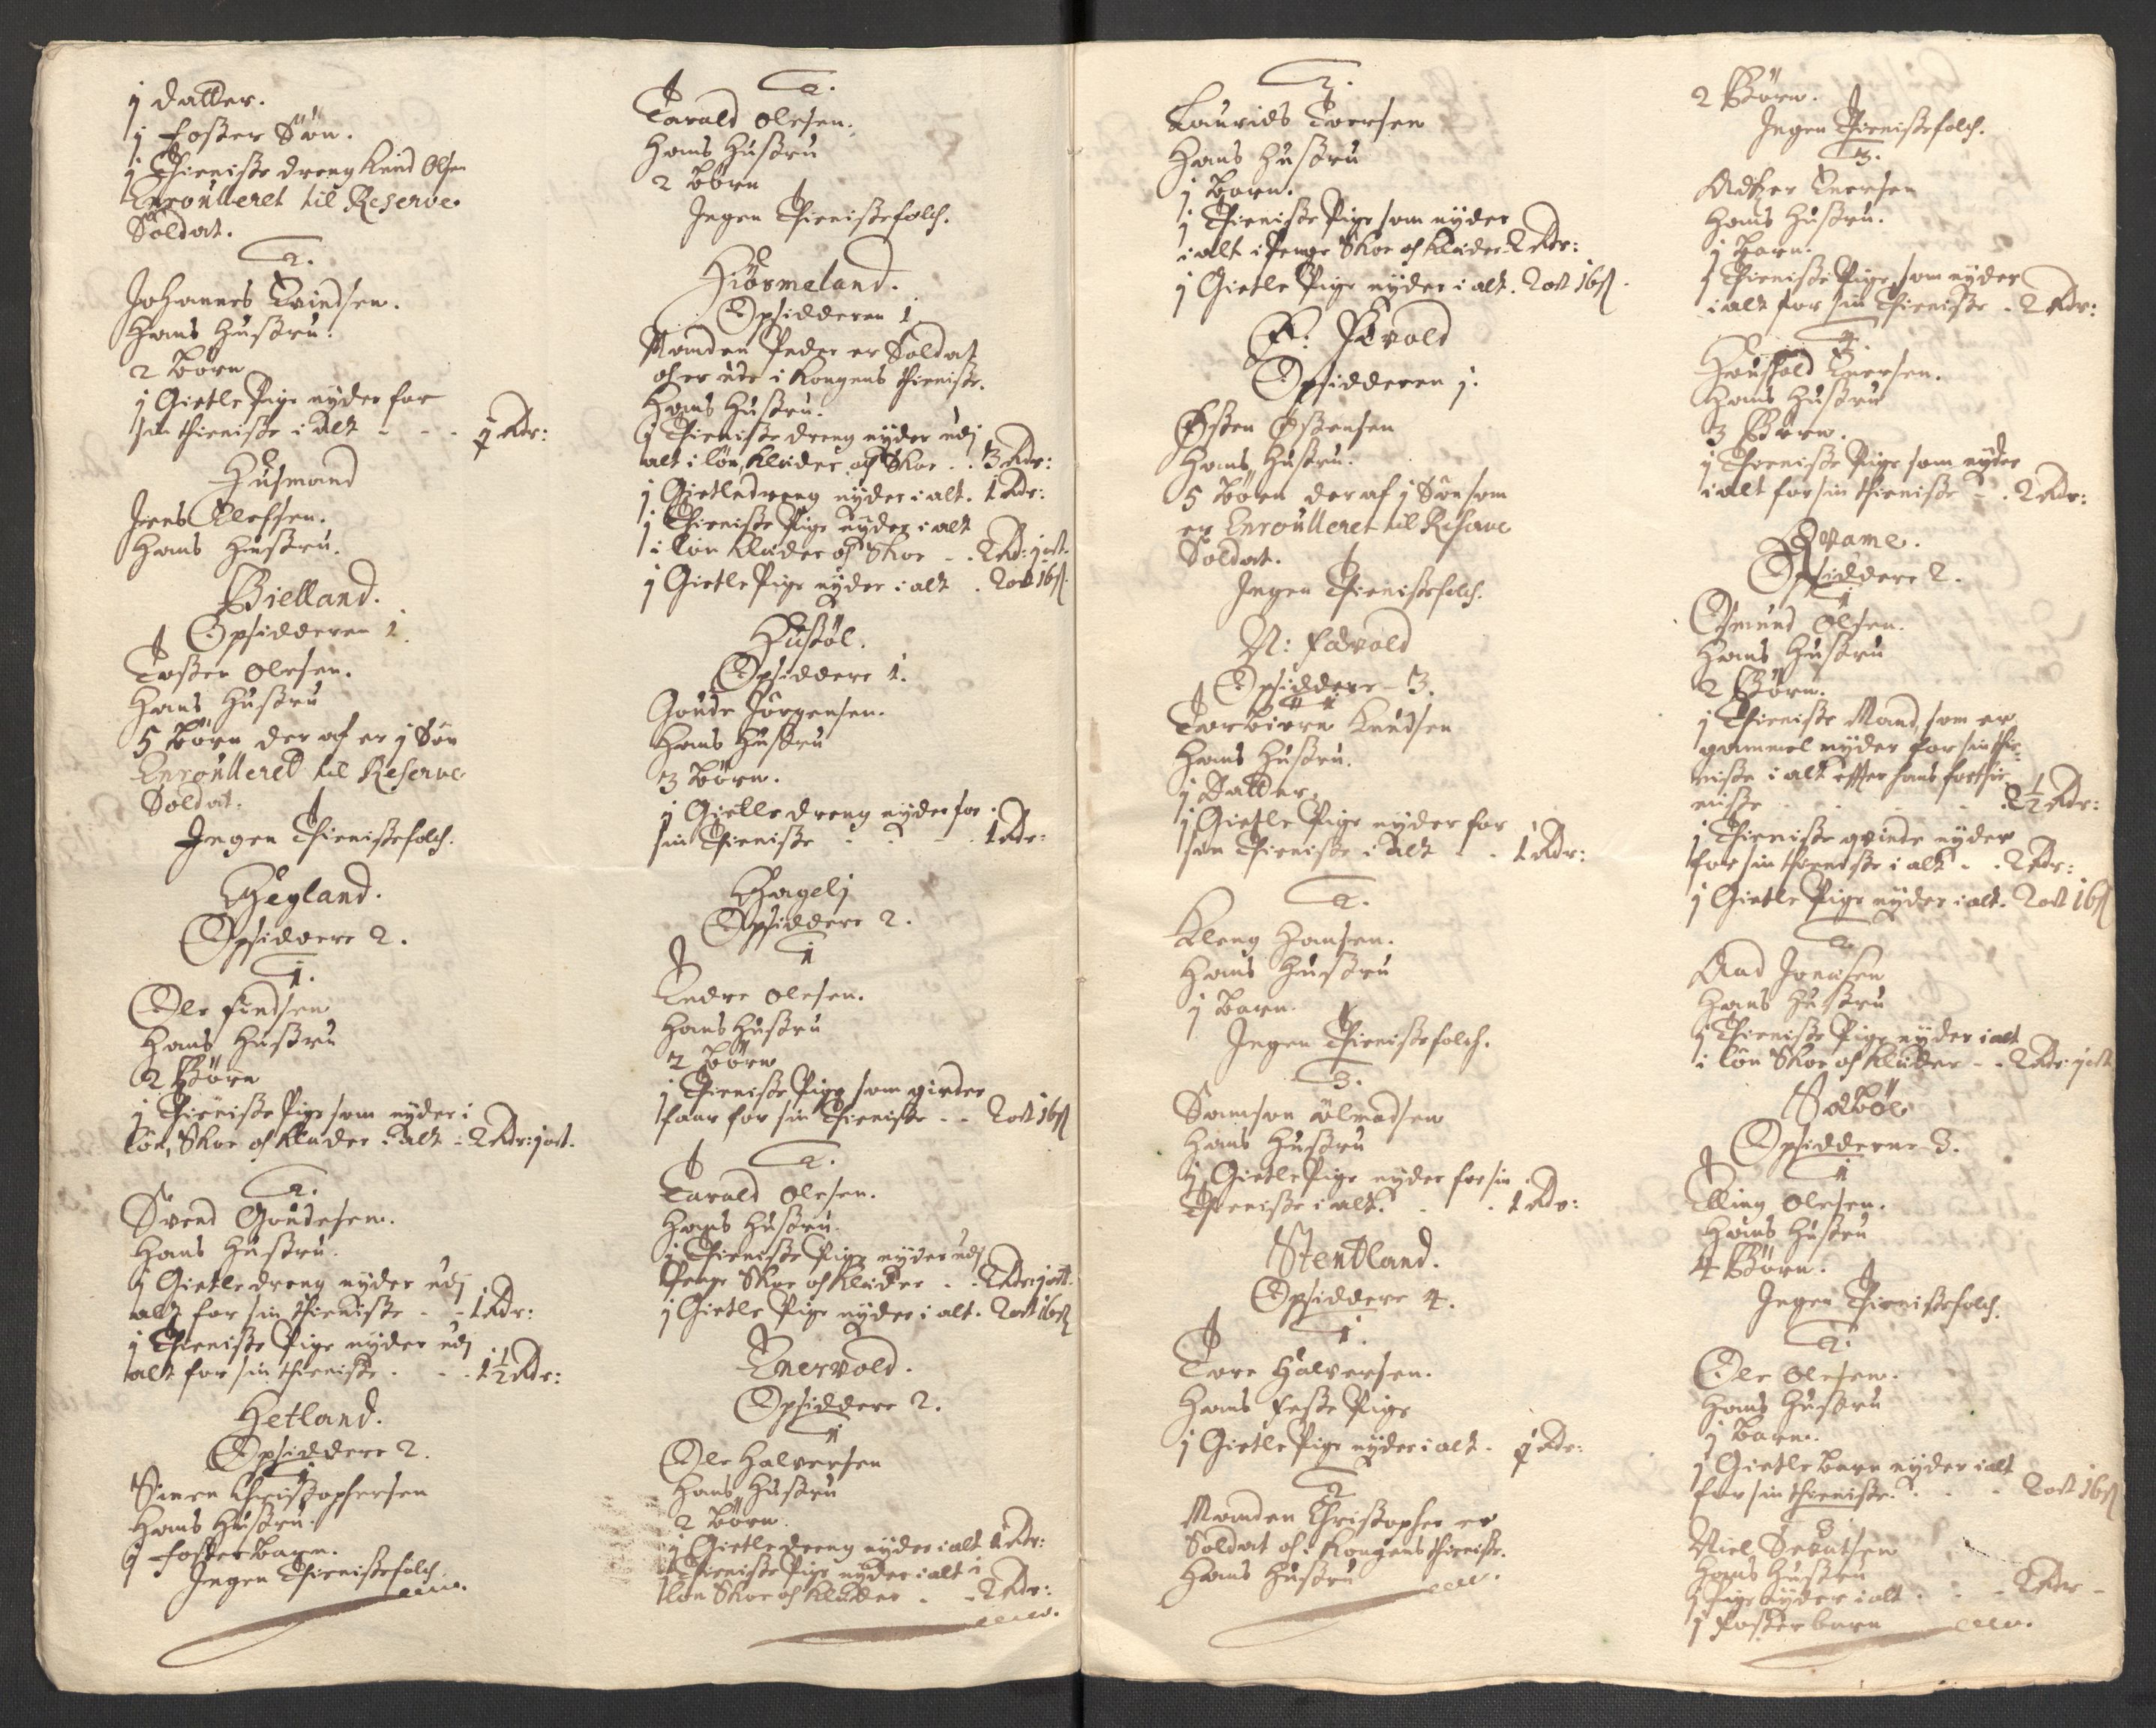 j datter.
j foster Søn.
j Thieniste dreng Knud Olsen
Enroulleret til Reserve
Soldat.
2.
Johannes Evindsen.
Hans Hustru.
2 Børn
j Gietle Pige nyder for
sin thieniste i alt - - - j Rdr:
Husmand
Jens Elefsen.
Hans Hustru.
Bielland.
Opsidderen 1.
Tosten Olesen.
Hans Hustru
5 Børn der af er j Søn
Enroulleret til Reserve
Soldat.
Ingen Thienistefolch.
Hegland.
Opsiddere 2.
1.
Ole findsen
Hans Hustru
2 Børn
j Thieniste Pige som nyder i
løn, Skoe och Klæder i alt - 2 Rdr: j ort.
2.
Svend Goudesen.
Hans Hustru.
j Gietledreng nyder udj
alt for sin thieniste - - 1 Rdr:
j Thieniste Pige nyder udj
alt for sin thieniste - - 1½ Rdr:
Hetland.
Opsiddere 2.
1
Simen Christophersen
Hans Hustru.
j foster barn.
Ingen Thienistefolch
2.
Tarald Olesen.
Hans Hustru
2 børn
Ingen Thienistefolch.
Hiørmeland.
Opsidderen 1
Manden Peder er Soldat
och er ude i Kongens thieniste.
Hans Hustru.
j Thieniste dreng nyder udj
alt i løn, Klæder och Skoe - . 3 Rdr:
j Gietledreng nyder i alt. 1 Rdr:
j Thieniste Pige nyder i alt
i løn Klæder och Skoe - . 2 Rd: j ort.
j Gietle Pige nyder i alt . 2 ort 16 ß
Husøl.
Opsiddere 1.
Goude Jörgensen.
Hans Hustru
3 børn.
j Gietle dreng nyder for
sin Thieniste - - - 1 Rdr:
Hagelj
Opsiddere 2.
1
Endre Olesen.
Hans Hustru
2 børn
j Thieniste Pige som gives
faar for sin Thieniste - - 2 ort 16 ß
2.
Tarald Olesen.
Hans Hustru.
j Thieniste Pige nyder udj
Penge Skoe och Klæder - . 2 Rdr: j ort.
j Gietle Pige nyder i alt. 2 ort 16 ß
Enervold.
Opsiddere 2.
1
Ole Halversen
Hans Hustru
2 børn.
j Gietledreng nyder i alt 1 Rdr:
j Thieniste Pige nyder i alt i
løn Skoe och Klæder - - 2 Rdr:
2.
Laurids Toersen
Hans Hustru
j Barn.
j Thieniste Pige som nyder
i alt i Penge Skoe och Klæder 2 Rdr:
j Gietle Pige nyder i alt. 2 ort 16 ß.
Ø: Fævold
Opsidderen j.
Østen Østensen
Hans Hustru.
5 børn der af j Søn som
er Enroulleret til Reserve
Soldat.
Ingen Thienistefolch.
N: Fævold
Opsiddere - 3.
1
Torbiørn Knudsen
Hans Hustru.
j Datter.
j Gietle Pige nyder for
sin Thieniste i alt - - 1 Rdr:
2.
Kleng Hansen.
Hans Hustru
j Barn.
Ingen Thienistefolch.
3.
Samson Olmodsen
Hans Hustru
j Gietle Pige nyder for sin
Thieniste i alt. - - 1 Rdr:
Stendland.
Opsiddere 4.
1.
Tore Halversen.
Hans feste Pige
j Gietle Pige nyder i alt - j Rdr:
2
Manden Christopher er
Soldat och i Kongens thieniste.
Hans Hustru
2 Børn.
Ingen Thienistefolch.
3.
Adzer Enersen
Hans Hustru.
j Barn.
j Thieniste Pige som nyder
i alt for sin Thieniste - 2 Rdr:
4.
Gunsold Enersen.
Hans Hustru
3 Børn.
j Thieniste Pige som nyder
i alt for sin thieniste - . 2 Rdr:
Qvame.
Opsiddere 2.
1
Osmund Olsen.
Hans Hustru
2 Børn.
j Thieniste Mand, som er
gammel nyder for sin thie-
niste i alt efter hans forthie
niste - - - 2½ Rdr:
j Thieniste qvinde nyder
for sin thieniste i alt - . 2 Rdr:
j Gietle Pige nyder i alt. 2 ort 16 ß
2.
Aad Jonasen
Hans Hustru
j Thieniste Pige nyder i alt
i løn Skoe och Klæder - - 2 Rdr: j ort
Sæbøe
Opsidderne 3.
1
Elling Olesen.
Hans Hustru
4 Børn.
Ingen Thienistefolch.
2.
Ole Olesen.
Hans Hustru
j Barn.
j Gietle barn nyder i alt
for sin thieniste. - - 2 ort 16 ß
3
Niel Sebutsen
Hans Hustru
j Pige nyder i alt - - 2 Rdr -
j foster barn